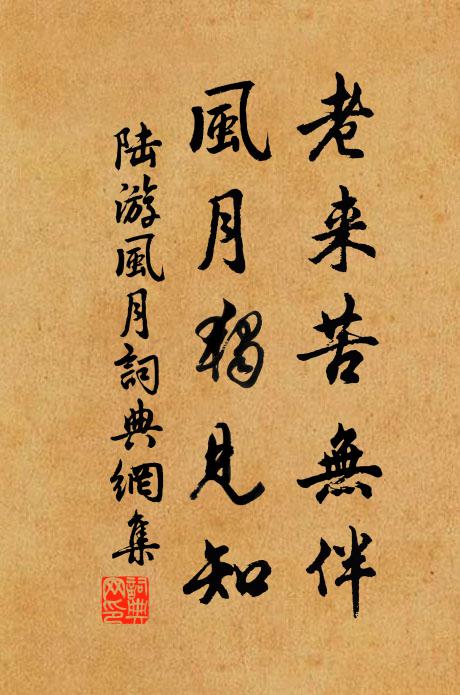 老来苦無伴
風月獨見知
陆游風月詞典網集
詞典網印